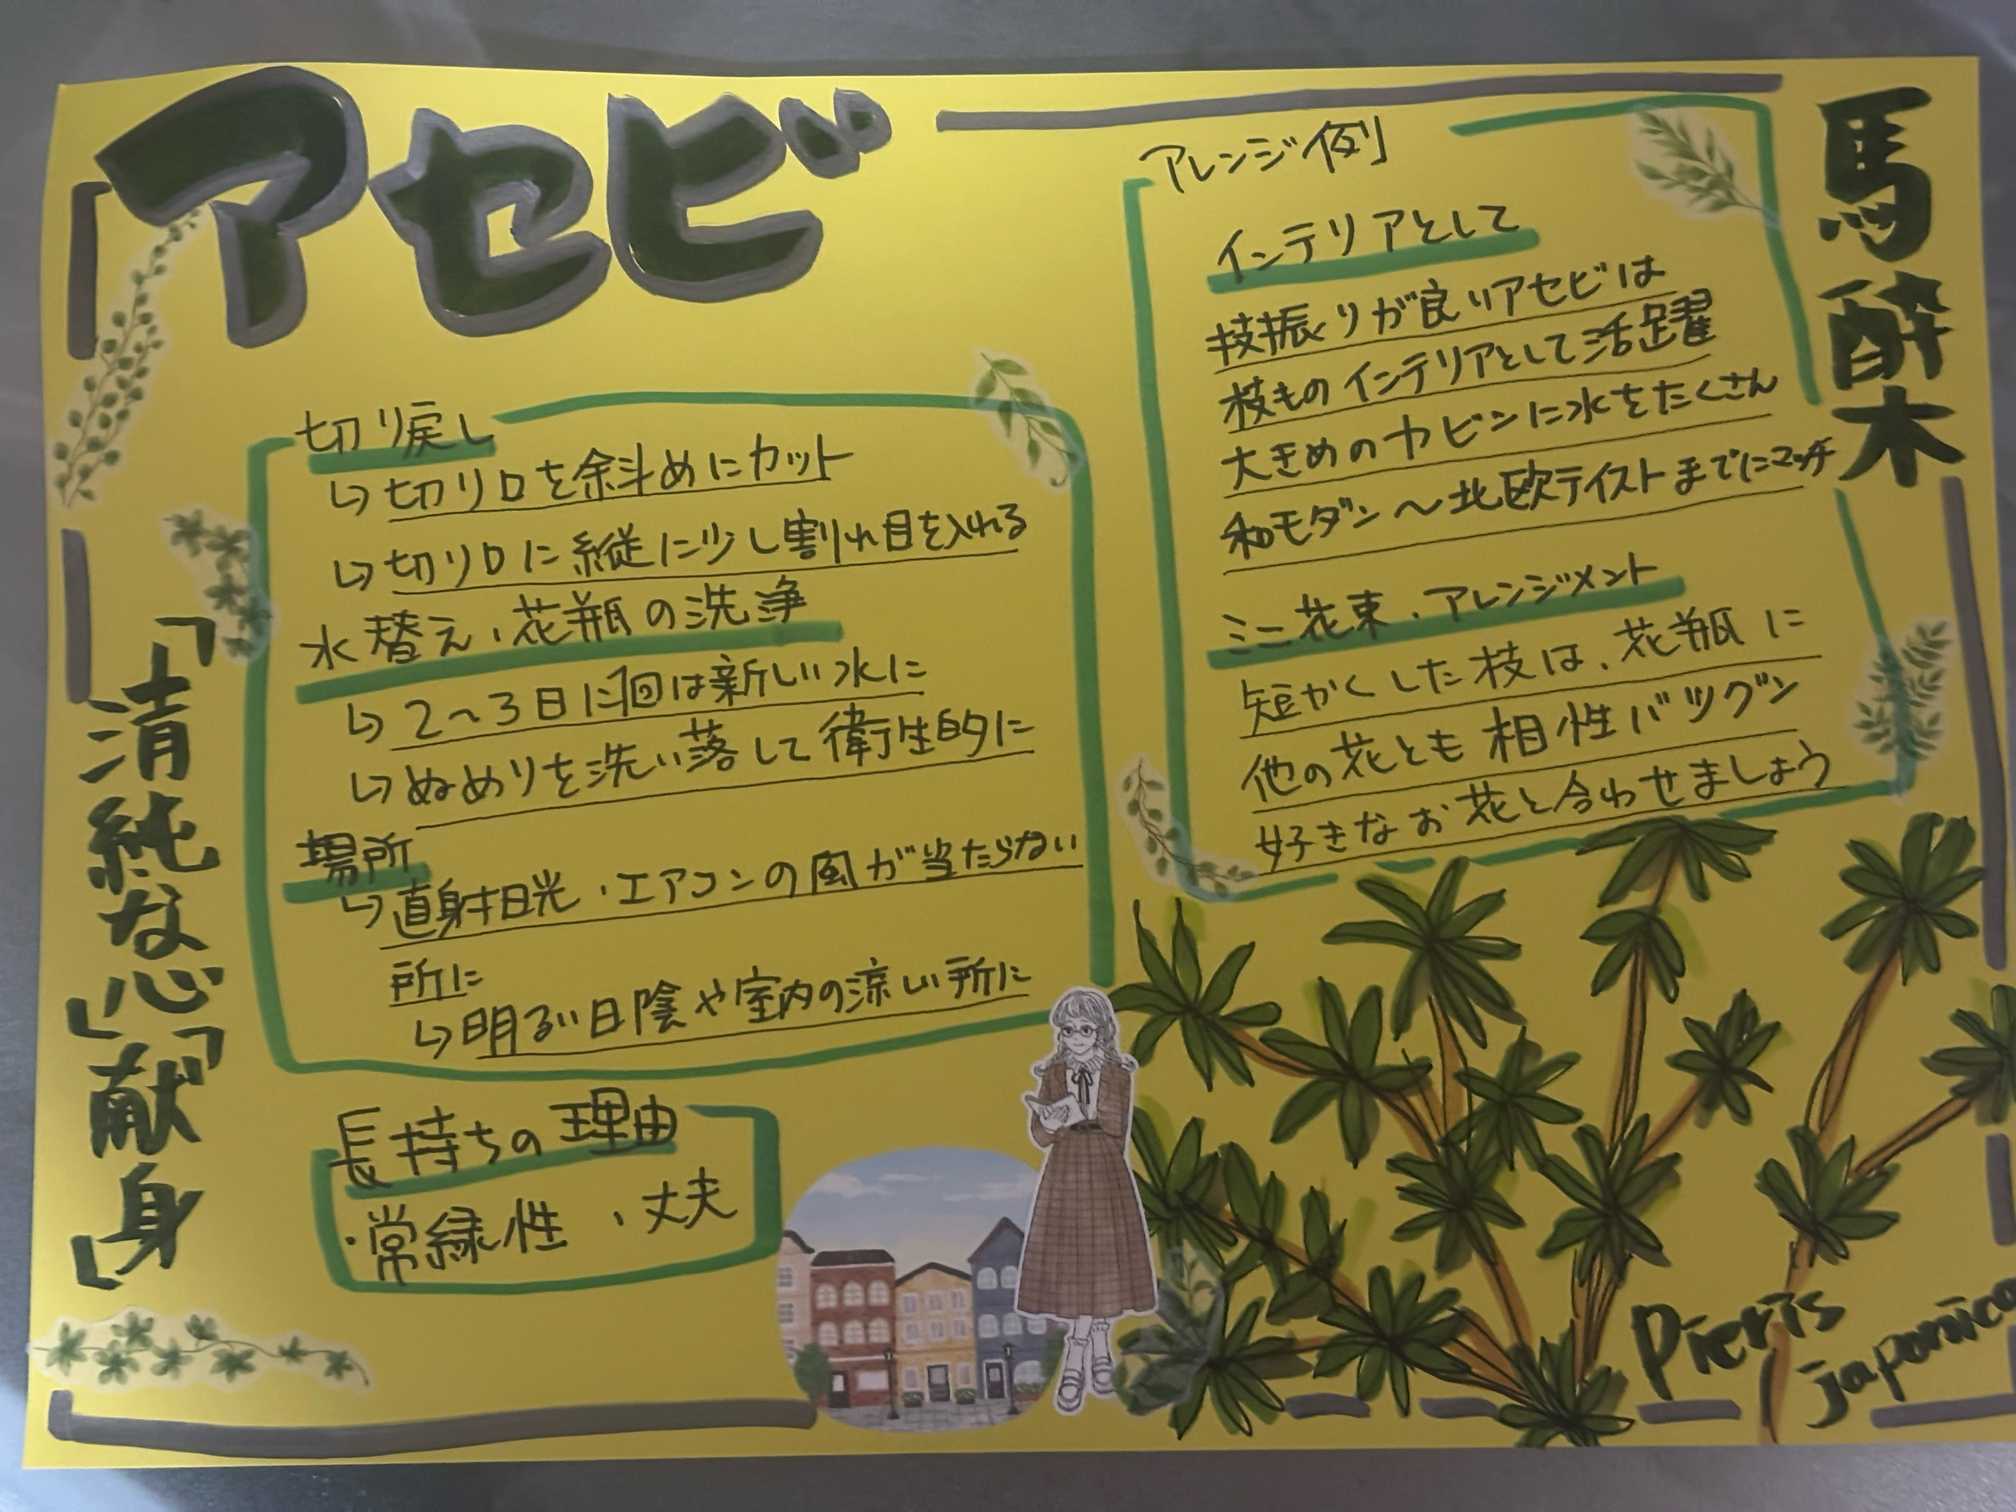 アセビ
馬酔木
「清純な心」「献身」
切り戻し
↳切り口を斜めにカット
↳切り口に縦に少し割れ目を入れる
水替え、花瓶の洗浄
↳2～3日に1回は新しい水に
↳ぬめりを洗い落して衛生的に
場所
↳直射日光・エアコンの風が当たらない
所に
↳明るい日陰や室内の涼しい所に
長持ちの理由
・常緑性、丈夫
アレンジ例
インテリアとして
技振りが良いアセビは
枝ものインテリアとして活躍
大きめのカビンに水をたくさん
和モダン～北欧テイストまでにマッチ
ミニ花束、アレンジメント
短かくした枝は、花瓶に
他の花とも相性バツグン
好きなお花と合わせましょう
Pieris
japonica